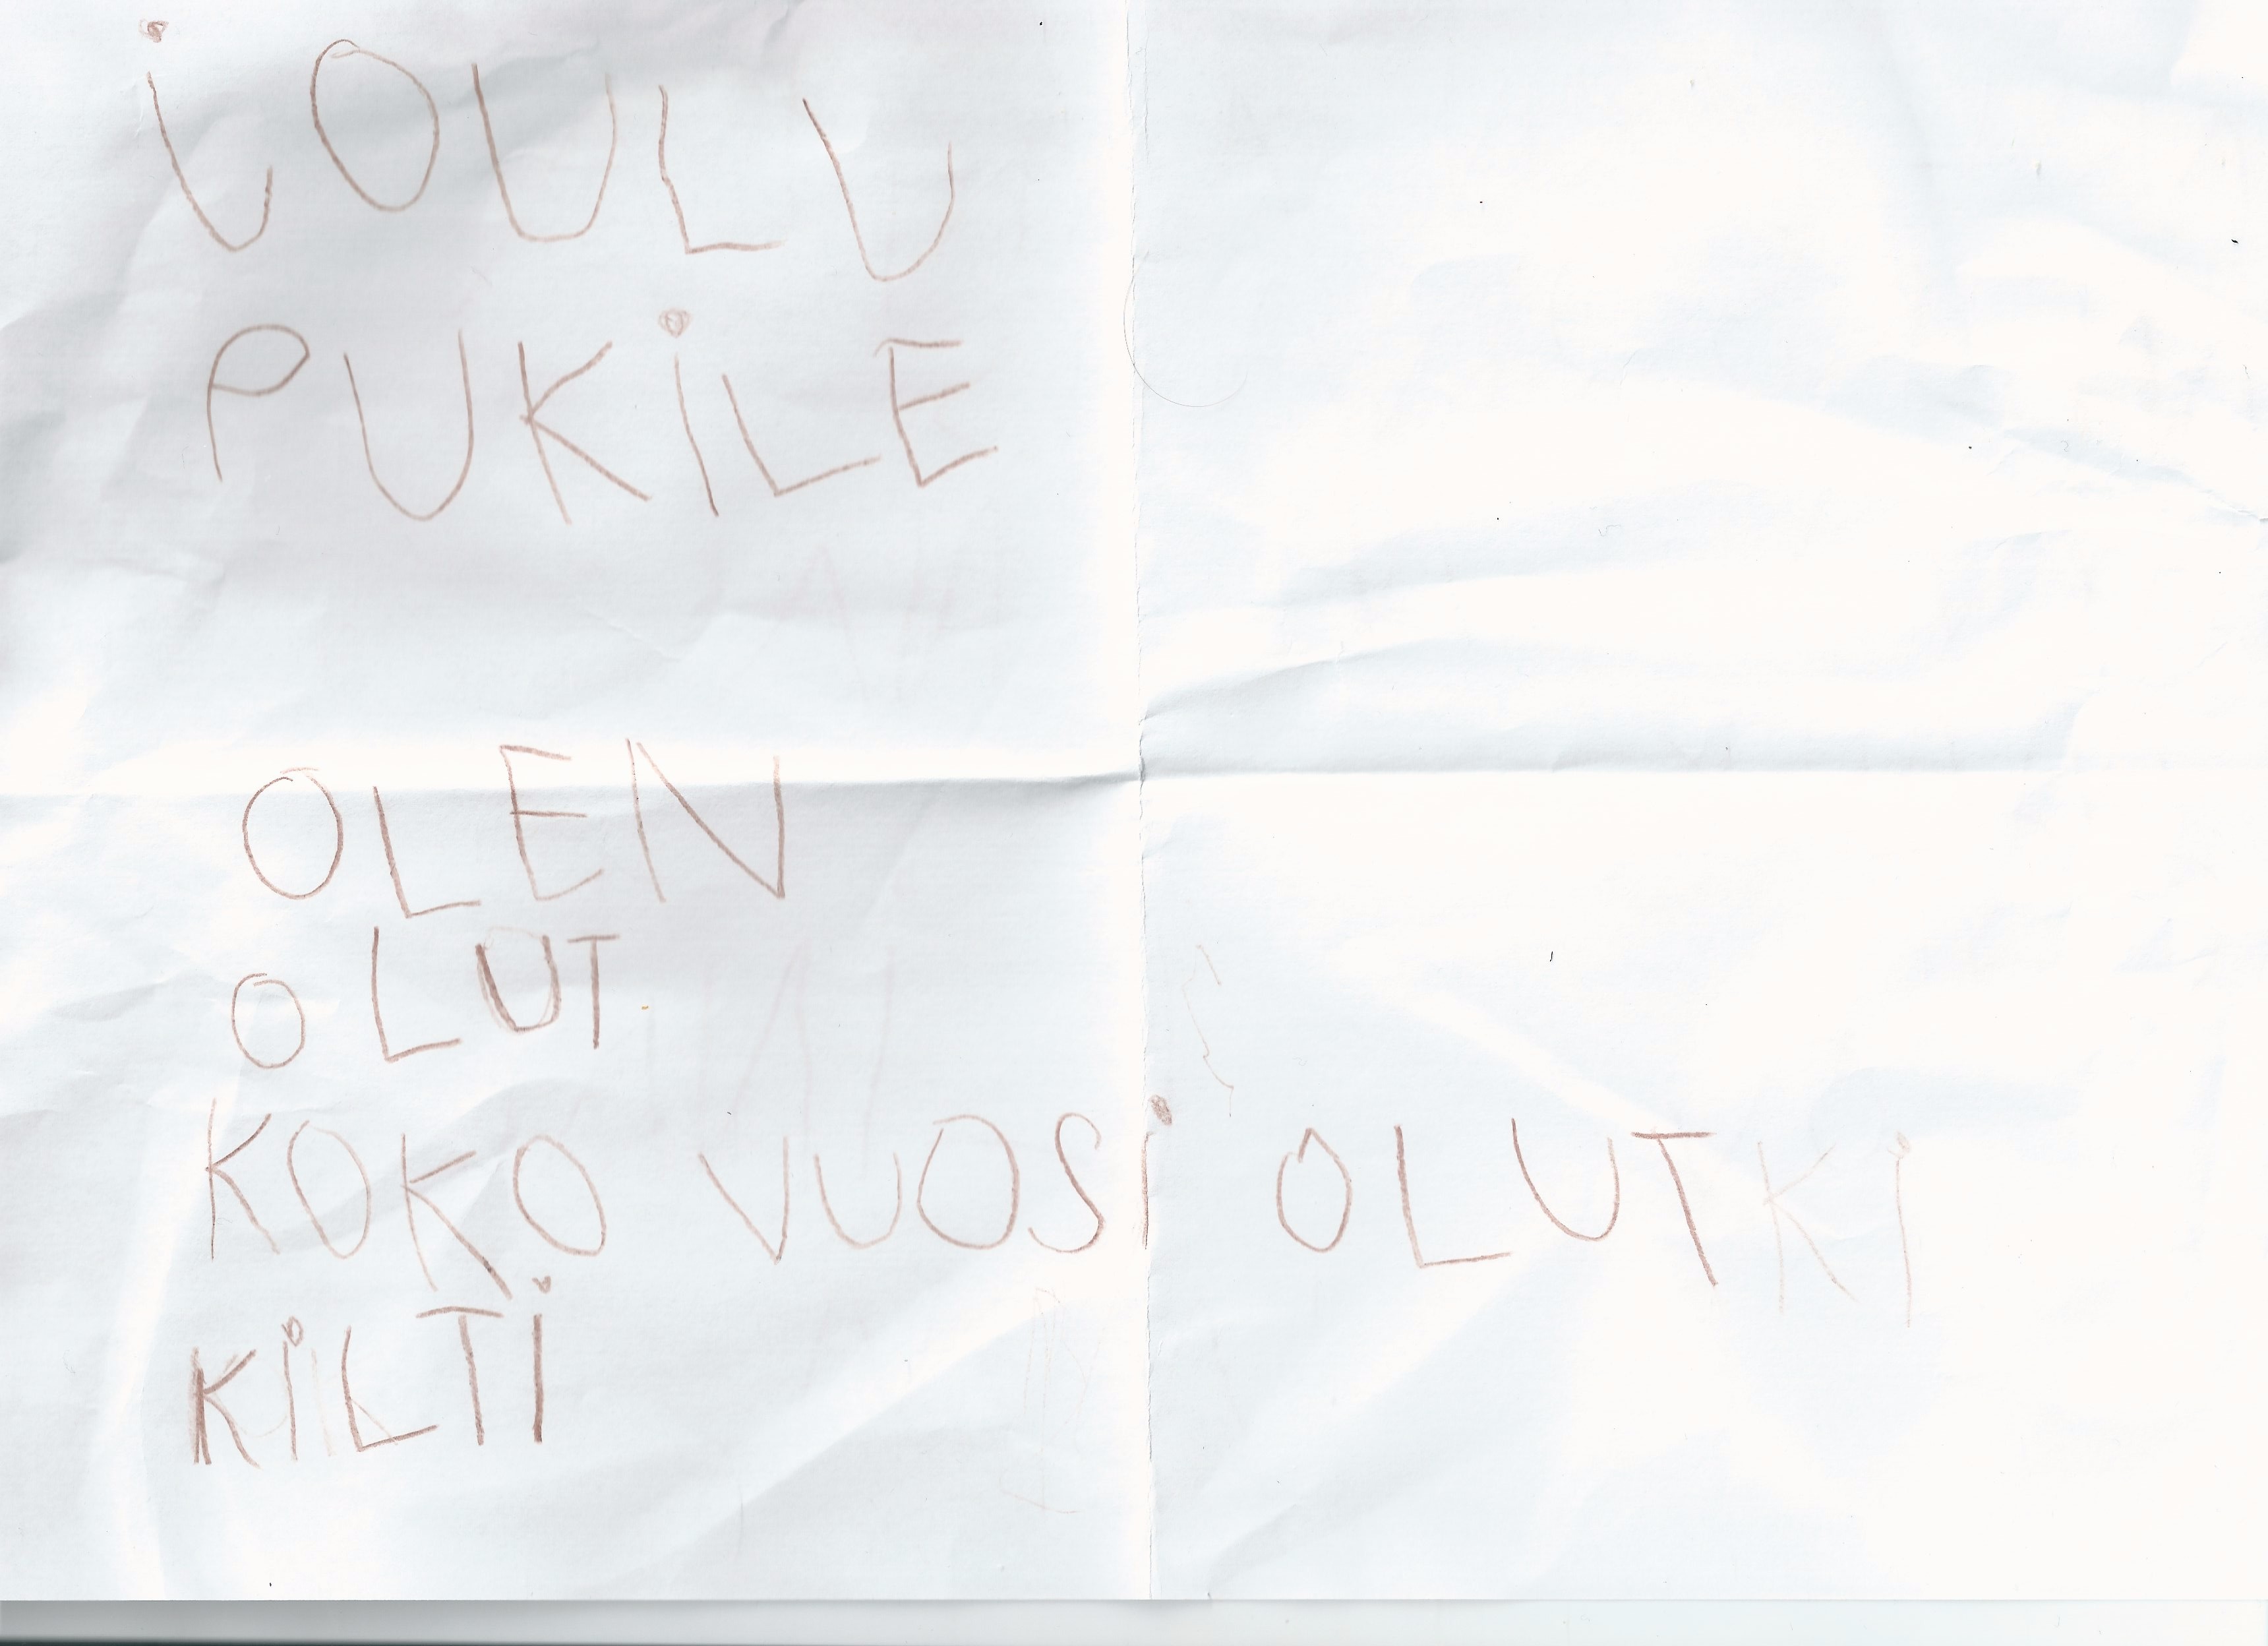 JOULU
PUKILE
OLEN
OLUT
KOKO VUOSI OLUTKI
KILTI